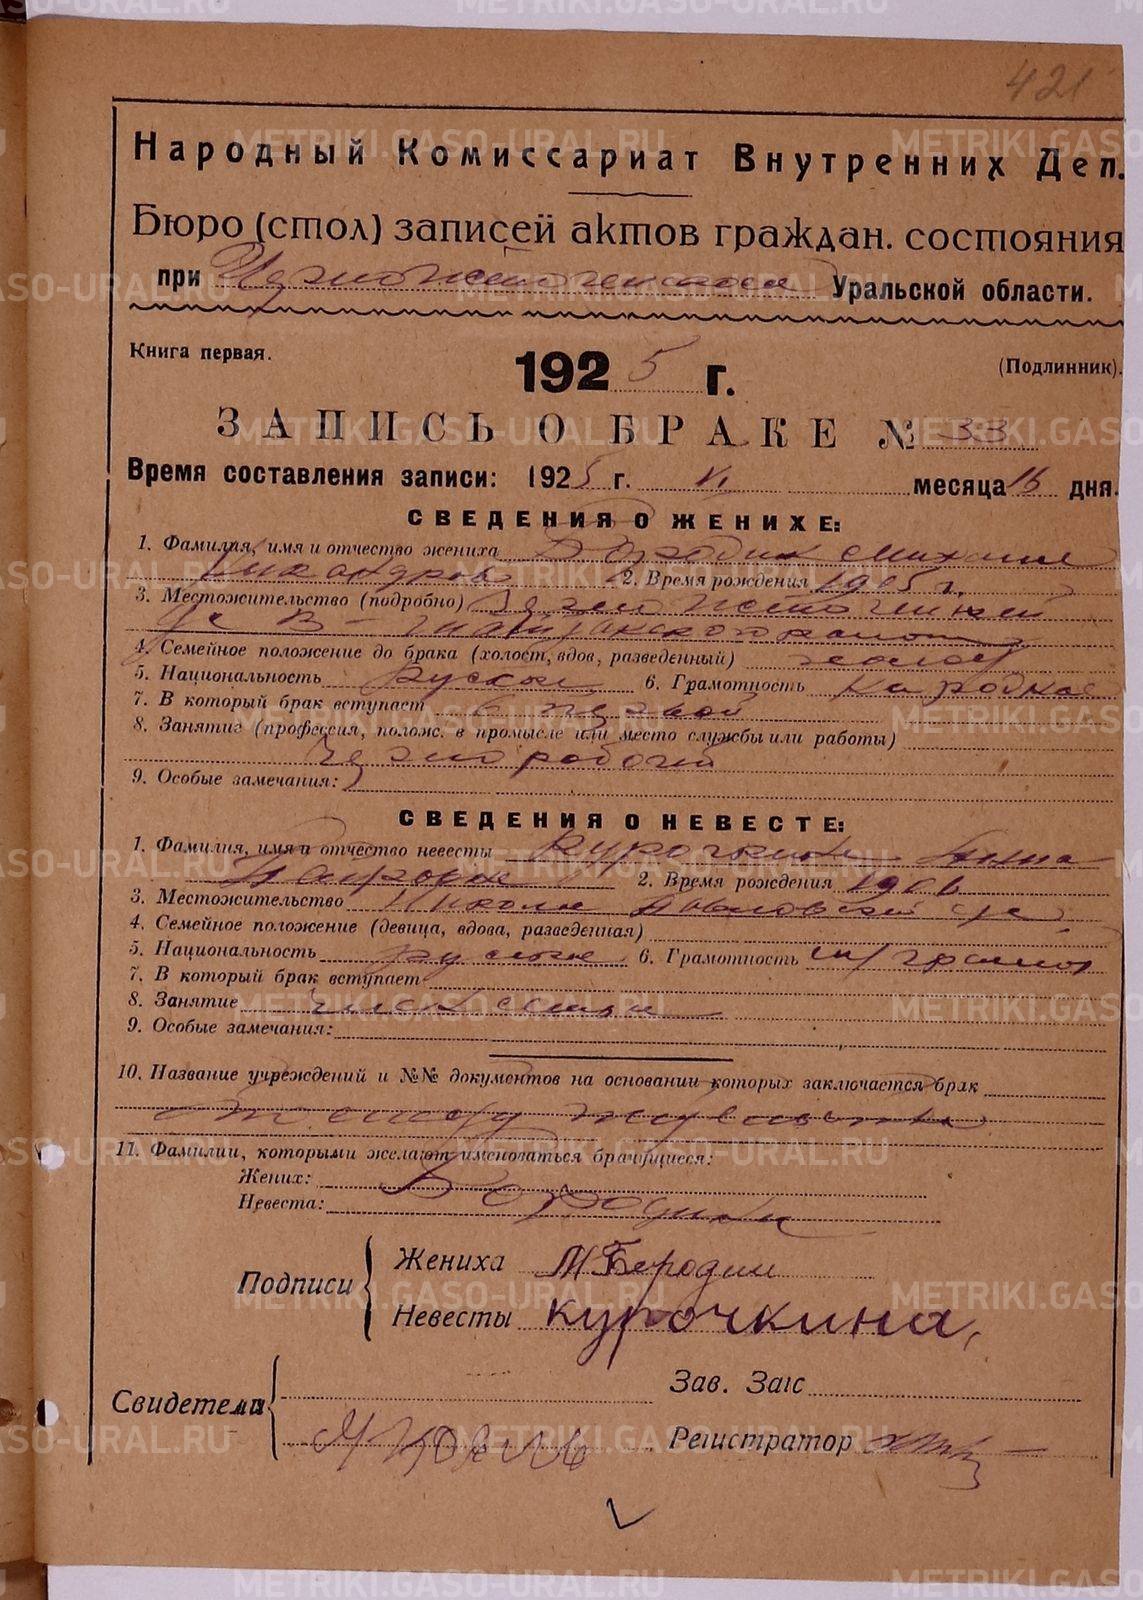 421
Народный Комиссариат Внутренних Дел.
Бюро (стол) записей актов граждан. состояния
при Черноисточенском Уральской области.
Книга первая.
(Подлинник).
1925 г.
ЗАПИСЬ О БРАКЕ № 33
Время составления записи: 1925 г. VI месяца 16 дня.
СВЕДЕНИЯ О ЖЕНИХЕ:
1. Фамилия, имя и отчество жениха Бородин Михаил
Никандров 2. Время рождения 1905 г.
3. Местожительство (подробно)
4. Семейное положение до брака (холост, вдов, разведенный) холост
5. Национальность Руской 6. Грамотность
7. В который брак вступает в первой
8. Занятие (профессия, полож. в промысле или место службы или работы)
Чернорабочей
9. Особые замечания:
СВЕДЕНИЯ О НЕВЕСТЕ:
1. Фамилия, имя и отчество невесты Курочкина Анна
2. Время рождения 1906
3. Местожительство Николо Павловской
4. Семейное положение (девица, вдова, разведенная)
5. Национальность руская 6. Грамотность
7. В который брак вступает
8. Занятие член семьи
9. Особые замечания:
10. Название учреждений и №№ документов на основании которых заключается брак
11. Фамилии, которыми желают именоваться брачущиеся:
Жених:
Невеста: Бородины
Подписи
Жениха М Бородин
Невесты Курочкина,
Свидетели
Зав. Загс
Регистратор
METRIKI.GASO-URAL.RU